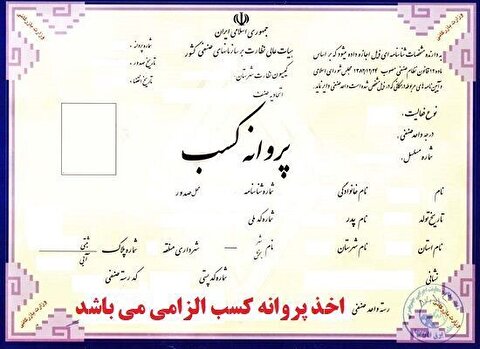 جمهوری اسلامی ایران
هیات عالی نظارت بر سازمانهای صنفی کشور
کمیسیون نظارت شهرستان
اتحادیه صنف
شماره پروانه :
تاریخ صدور :
تاریخ انقضاء :
به دارنده مشخصات شناسنامه ای ذیل اجازه داده میشود که بر اساس
ماده ۱۲ قانون نظام صنفی مصوب ۱۳۸۲/۱۲/۲۴ مجلس شورای اسلامی
و آیین نامه های مربوطه در مکانی که در ذیل مشخص شده است واحد صنفی دایر نماید
نوع فعالیت :
درجه واحد صنفی :
شماره مسلسل :
پروانه کسب
نام نام خانوادگی شماره شناسنامه محل صدور
تاریخ تولد نام پدر شماره کد ملی
نام استان نام شهرستان نام شهر بخش شهرداری منطقه شماره پلاک ثبتی آبی
نشانی شماره کد پستی کد رسته صنفی
رسته واحد صنفی
اخذ پروانه کسب الزامی می باشد
وزارت بازرگانی
وزارت بازرگانی
وزارت بازرگانی